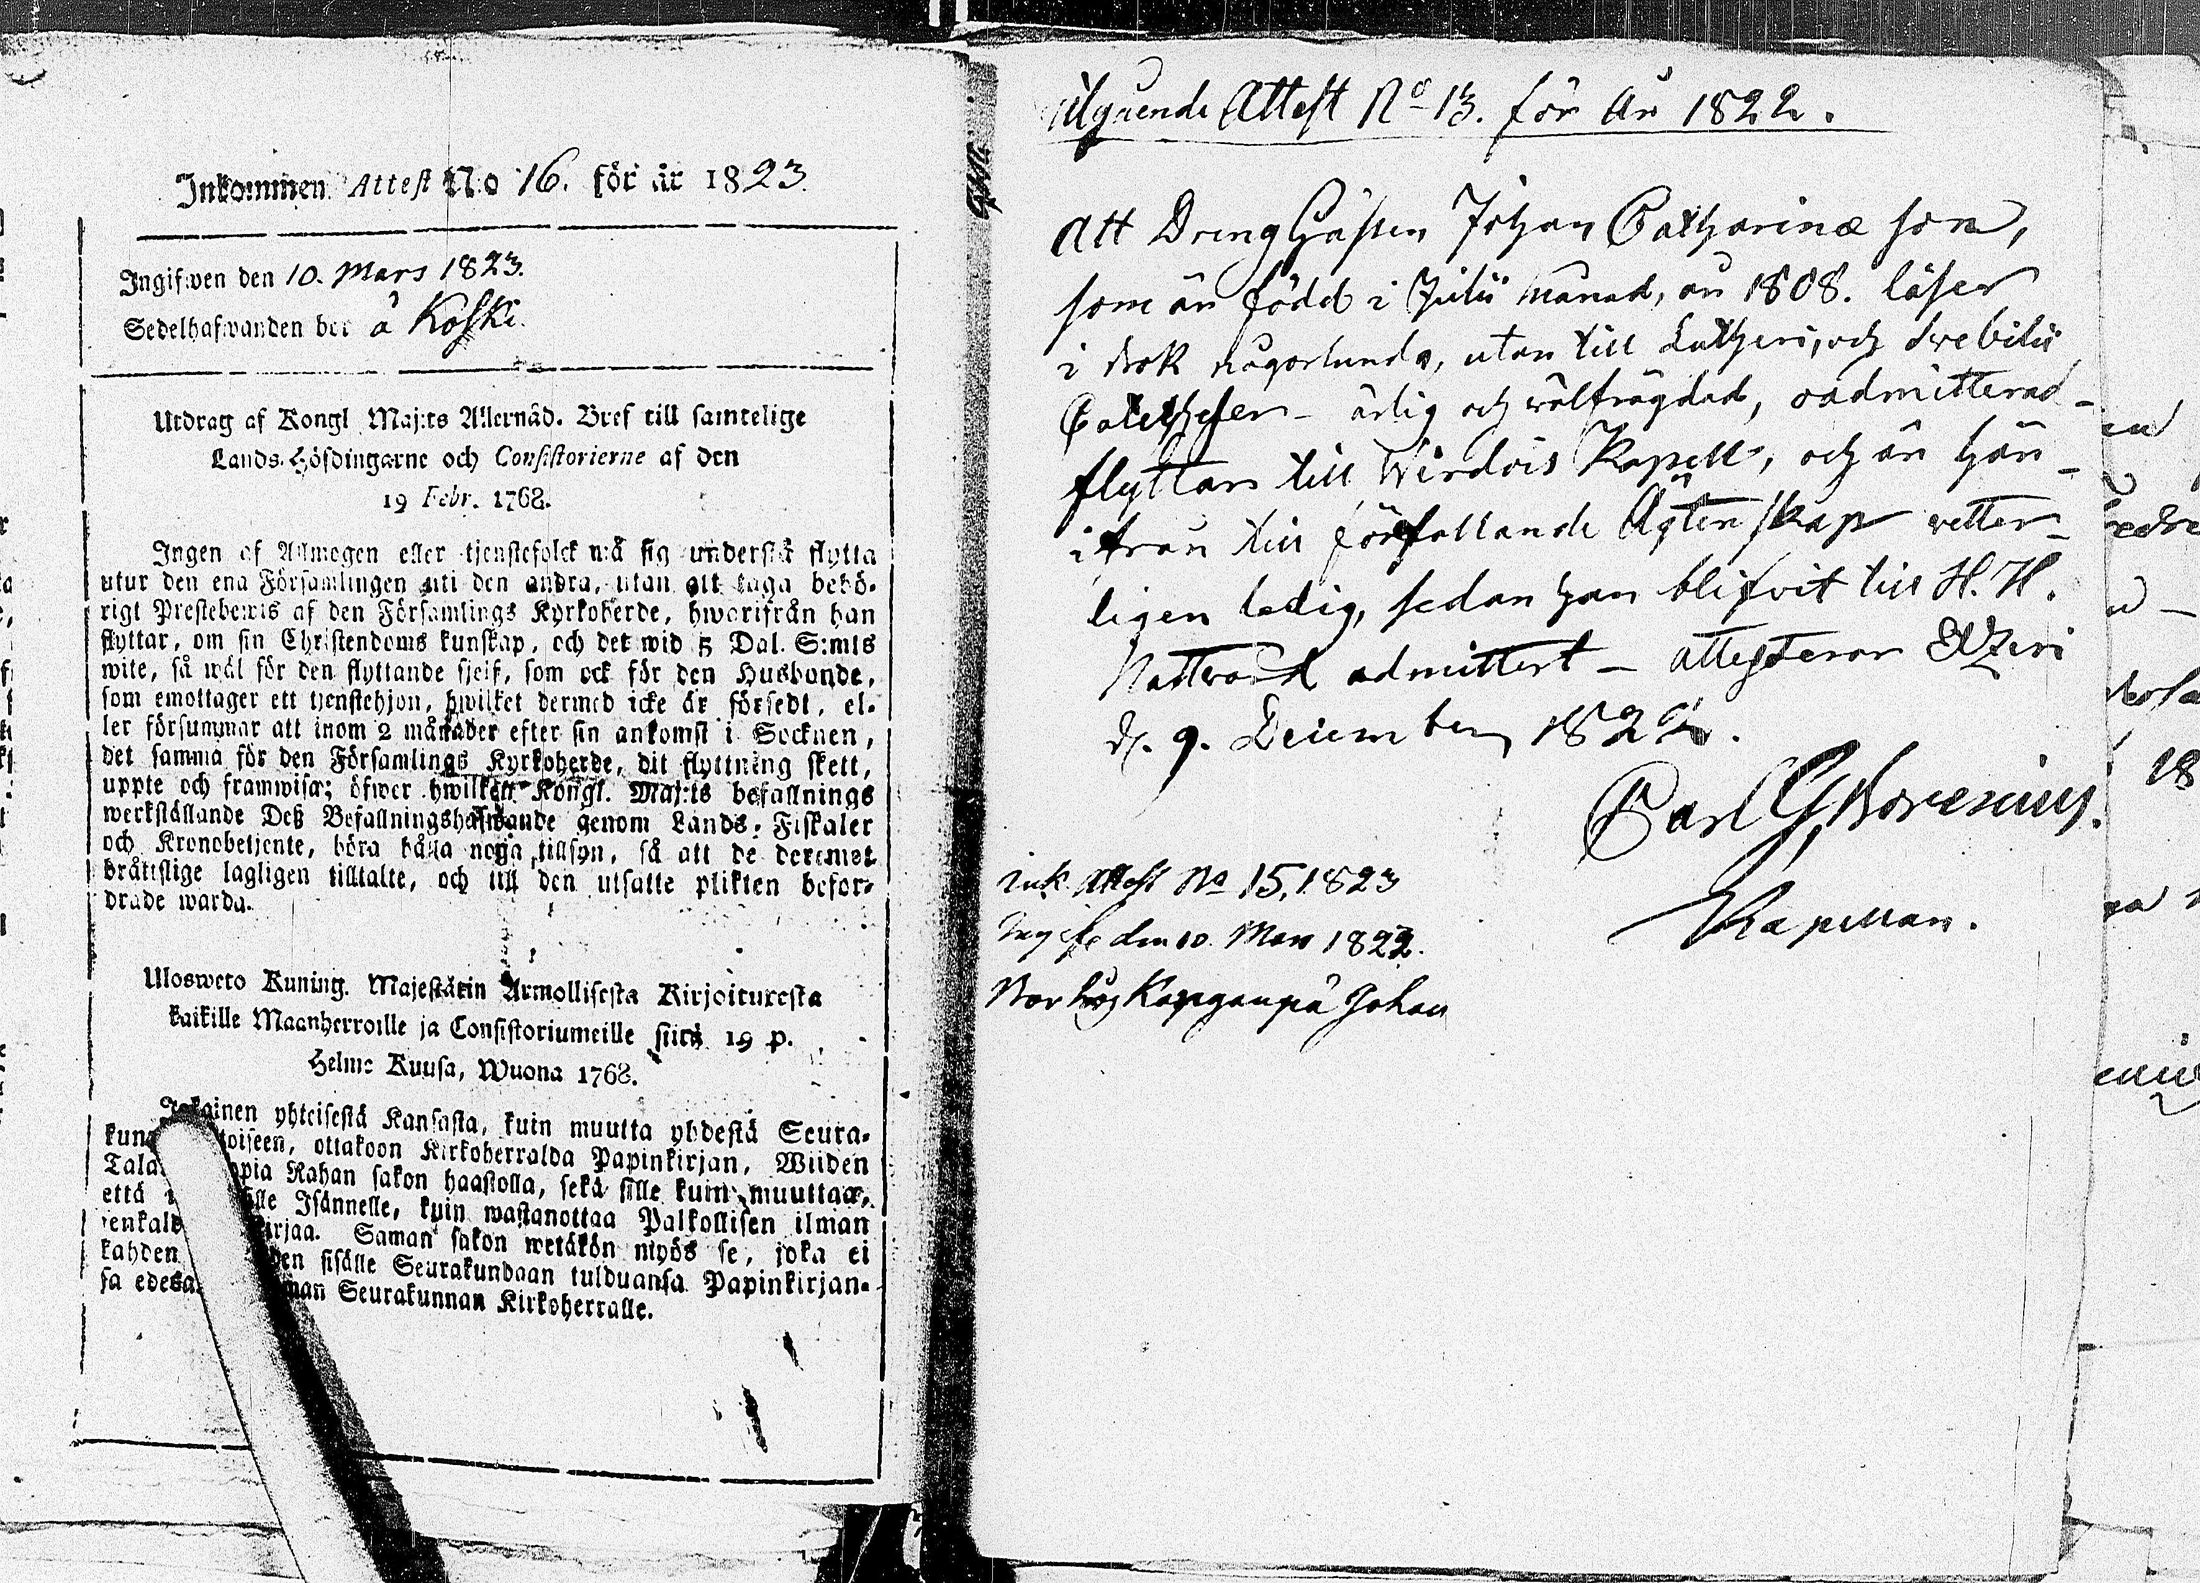 Inkommen Attest No 16. för år 1823.
Ingifwen den 10. Mars 1823.
Sedelhafwanden bor å Koski.
Utdrag af Kongl Maj:ts Allernåd. Bref till samtelige
Lands-Höfdingarne och Consistorierne af den
19 Febr. 1768.
Ingen af Allmogen eller tjenstefolck må sig understå flytta
utur den ena Församlingen uti den andra, utan att taga behö-
rigt Prestebewis af den Församlings Kyrkoherde, hwarifrån han
flyttar, om sin Christendoms kunskap, och det wid 5 Dal. S:mts
wite, så wäl för den flyttande sjelf, som ock för den Husbonde,
som emottager ett tjenstehjon, hwilket dermed icke är försedt, el-
ler försummar att inom 2 månader efter sin ankomst i Socknen,
det samma för den Församlings Kyrkoherde, dit flyttning skett,
uppte och framwisa; öfwer hwilket Kongl. Maj:ts befallnings
werkställande Deß Befallningshafwande genom Lands-Fiskaler
och Kronobetjente, böra hålla noga tillsyn, så att de deremot
bråttslige lagligen tilltalte, och till den utsatte plikten befor-
drade warda.
Ulosweto Kuning. Majestätin Armollisesta Kirjoituxesta
kaikille Maanherroille ja Consistoriumeille siitä 19 p.
Helme Kuusa, Wuona 1768.
Jokainen yhteisestä Kansasta, kuin muutta yhdestä Seura-
kun toiseen, ottakoon Kirkoherralda Papinkirjan, Wiiden
Tala opia Rahan sakon haastolla, sekä sille kuin muuttaa,
että sille Isännelle, kuin wastanottaa Palkollisen ilman
senkald kirjaa. Saman sakon wetäkön myös se, joka ei
kahden den sisälle Seurakundaan tulduansa Papinkirjan-
sa edesa man Seurakunnan Kirkoherralle.
Utgående Attest No 13. för År 1822.
Att Dreng Gåssen Johan Catharinæ son,
som är född i Julii månad, år 1808. läser
i Bok någorlunda, utan till Lutheri, och Swebilii
Catechesen - ärlig och wälfrägdad, oadmitterad -
flyttar till Wirdois Kapell, och är här-
ifrån till förefallande Ägtenskap wetter-
ligen ledig, sedan han blifvit till H. H.
Nattward admittert - attesterar Etzeri
d. 9. December 1822.
Carl G. Borenius.
Kapellan.
ink. Attest No 15, 1823
Ingif den 10. Mars 1822.
Bor hos Kanganpä Johan